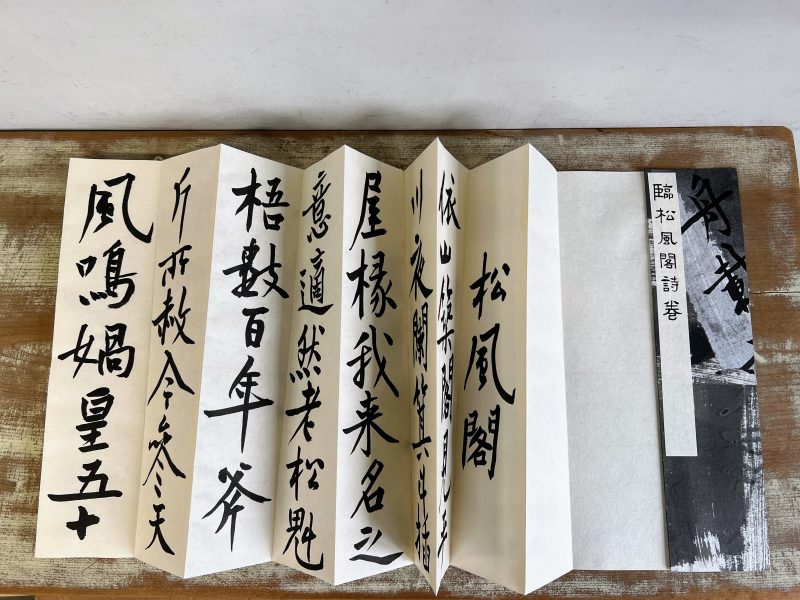 舟載
臨松風閣詩卷
松風閣
依山築閣見平
川夜闌箕斗插
屋椽我来名之
意適然老松魁
梧數百年斧
斤所赦今參天
風鳴媧皇五十